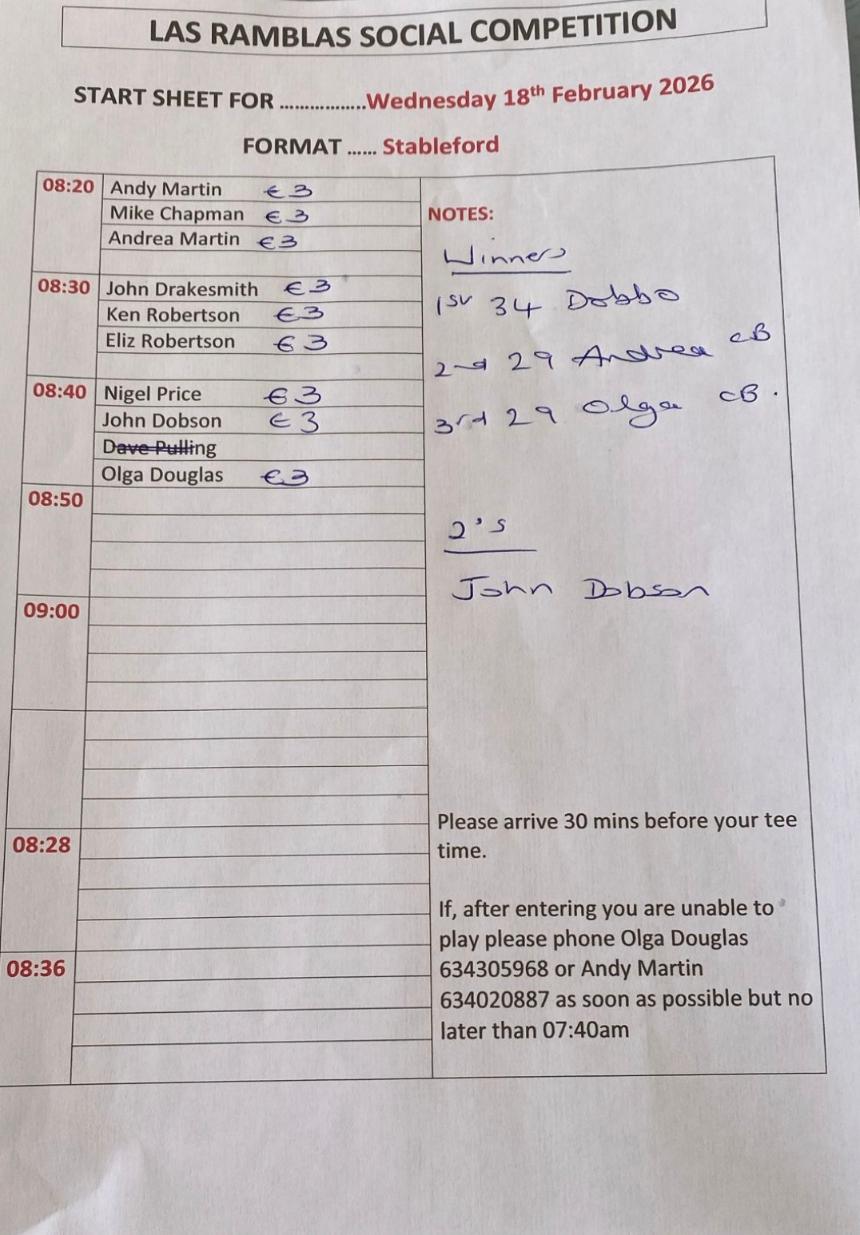 LAS RAMBLAS SOCIAL COMPETITION
START SHEET FOR .................Wednesday 18th February 2026
FORMAT ...... Stableford
08:20 Andy Martin € 3
Mike Chapman € 3
Andrea Martin € 3
08:30 John Drakesmith € 3
Ken Robertson € 3
Eliz Robertson € 3
08:40 Nigel Price € 3
John Dobson € 3
Dave Pulling
Olga Douglas € 3
08:50
09:00
08:28
08:36
NOTES:
Winners
1st 34 Dobbo
2nd 29 Andrea CB
3rd 29 Olga CB.
2's
John Dobson
Please arrive 30 mins before your tee
time.
If, after entering you are unable to
play please phone Olga Douglas
634305968 or Andy Martin
634020887 as soon as possible but no
later than 07:40am